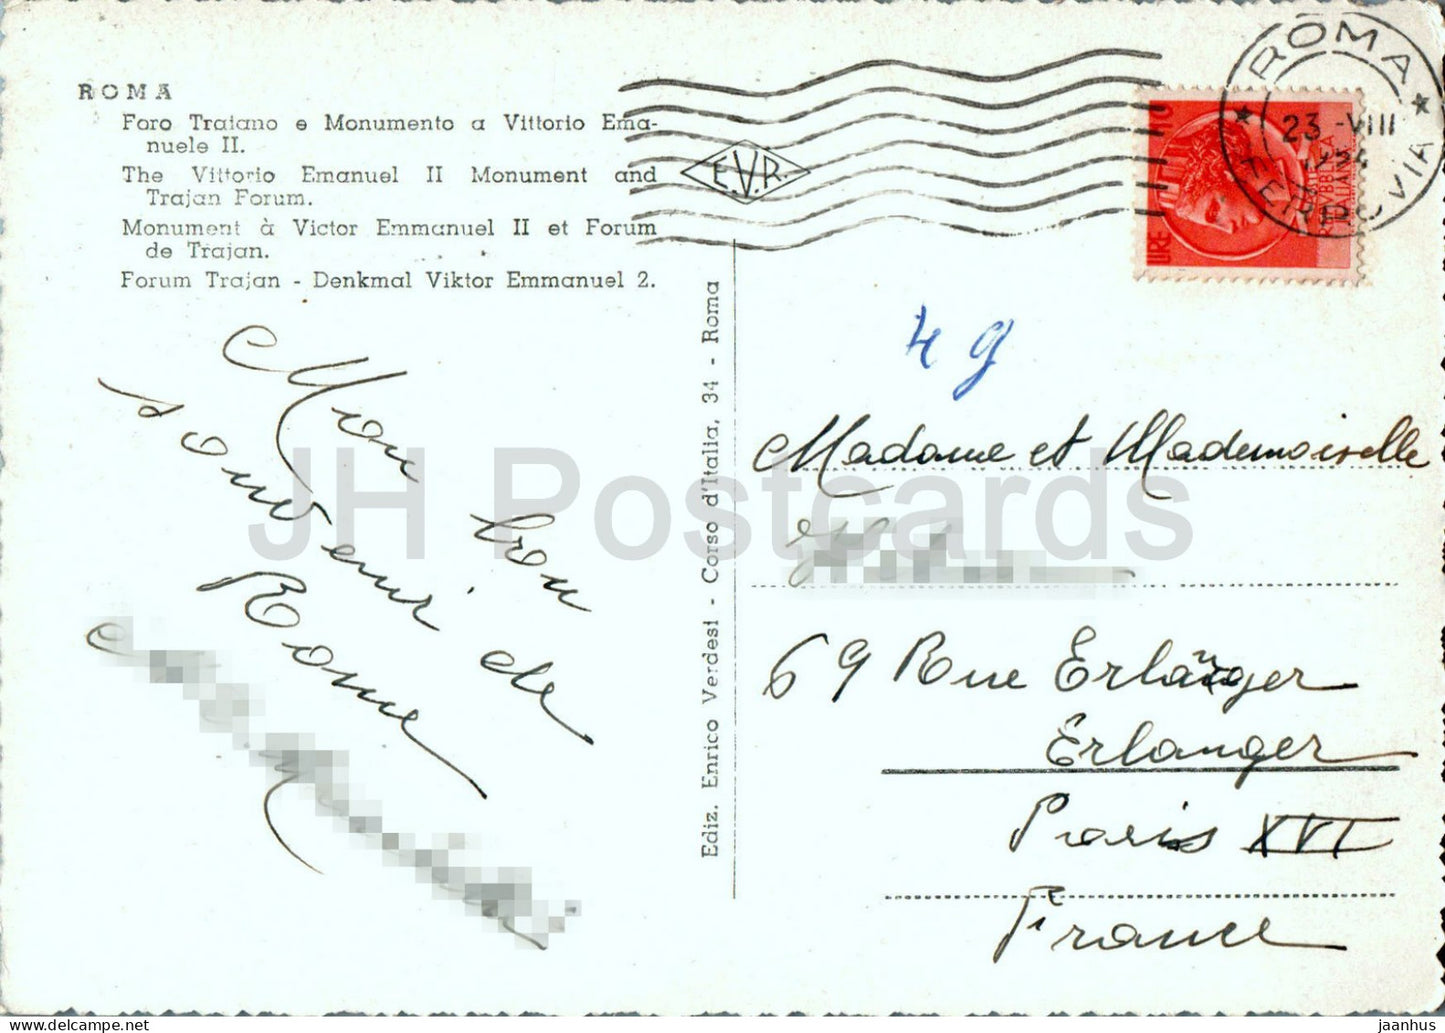 ROMA
Foro Traiano e Monumento a Vittorio Ema-
nuele II.
The Vittorio Emanuel II Monument and
Trajan Forum.
Monument à Victor Emmanuel II et Forum
de Trajan.
Forum Trajan - Denkmal Viktor Emmanuel 2.
E.V.R.
ROMA
FERROVIA
23-VIII
1954
LIRE 10
Mon bon
souvenir de
Rome
Ediz. Enrico Verdesi - Corso d'Italia, 34 - Roma
49
Madame et Mademoiselle
69 Rue Erlanger
Erlanger
Paris XVI
France
JH Postcards
delcampe.net
jaanhus